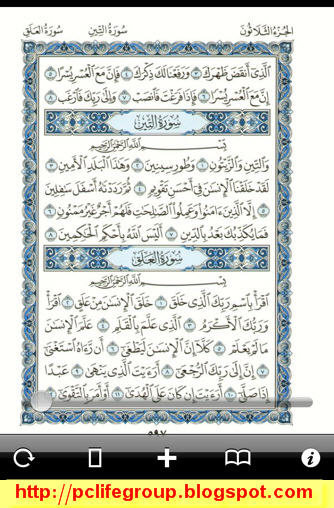 الجزء الثلاثون سورة التين سورة العلق
الذي أنقض ظهرك ٣ ورفعنا لك ذكرك ٤ فإن مع العسر يسرا ٥
إن مع العسر يسرا ٦ فإذا فرغت فانصب ٧ وإلى ربك فارغب ٨
سورة التين
بسم الله الرحمن الرحيم
والتين والزيتون ١ وطور سينين ٢ وهذا البلد الأمين ٣
لقد خلقنا الإنسن في أحسن تقويم ٤ ثم رددنه أسفل سفلين
٥ إلا الذين ءامنوا وعملوا الصلحت فلهم أجر غير ممنون ٦
فما يكذبك بعد بالدين ٧ أليس الله بأحكم الحكمين ٨
سورة العلق
بسم الله الرحمن الرحيم
اقرأ باسم ربك الذي خلق ١ خلق الإنسن من علق ٢ اقرأ
وربك الأكرم ٣ الذي علم بالقلم ٤ علم الإنسن
ما لم يعلم ٥ كلا إن الإنسن ليطغى ٦ أن رءاه استغنى
٧ إن إلى ربك الرجعى ٨ أرءيت الذي ينهى ٩ عبدا
إذا صلى ١٠ أرءيت إن كان على الهدى ١١ أو أمر بالتقوى ١٢
٥٩٧
http://pclifegroup.blogspot.com